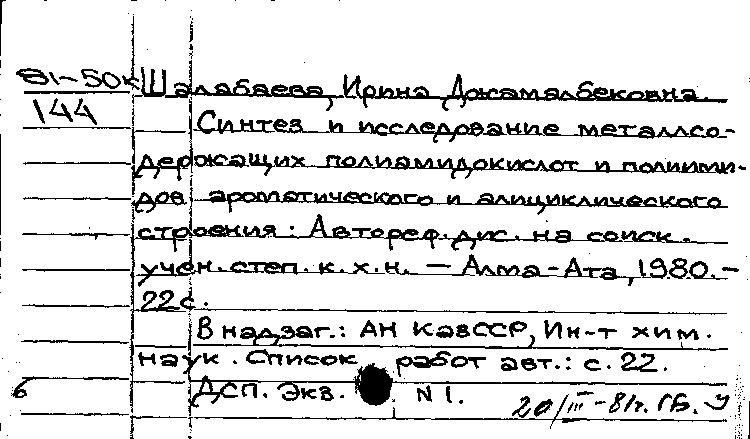 81-50к Шалабаева, Ирина Джамалбековна.
144
Синтез и исследование металлсо-
держащих полиамидокислот и полиими-
дов ароматического и алициклического
строения: Автореф. дис. на соиск.
учен. степ. к. х. н. — Алма-Ата, 1980. –
22 с.
В надзаг.: АН КазССР, Ин-т хим.
наук. Список работ авт.: с. 22.
6 ДСП. Экз. N 1.
20/III-81г. ГБ.